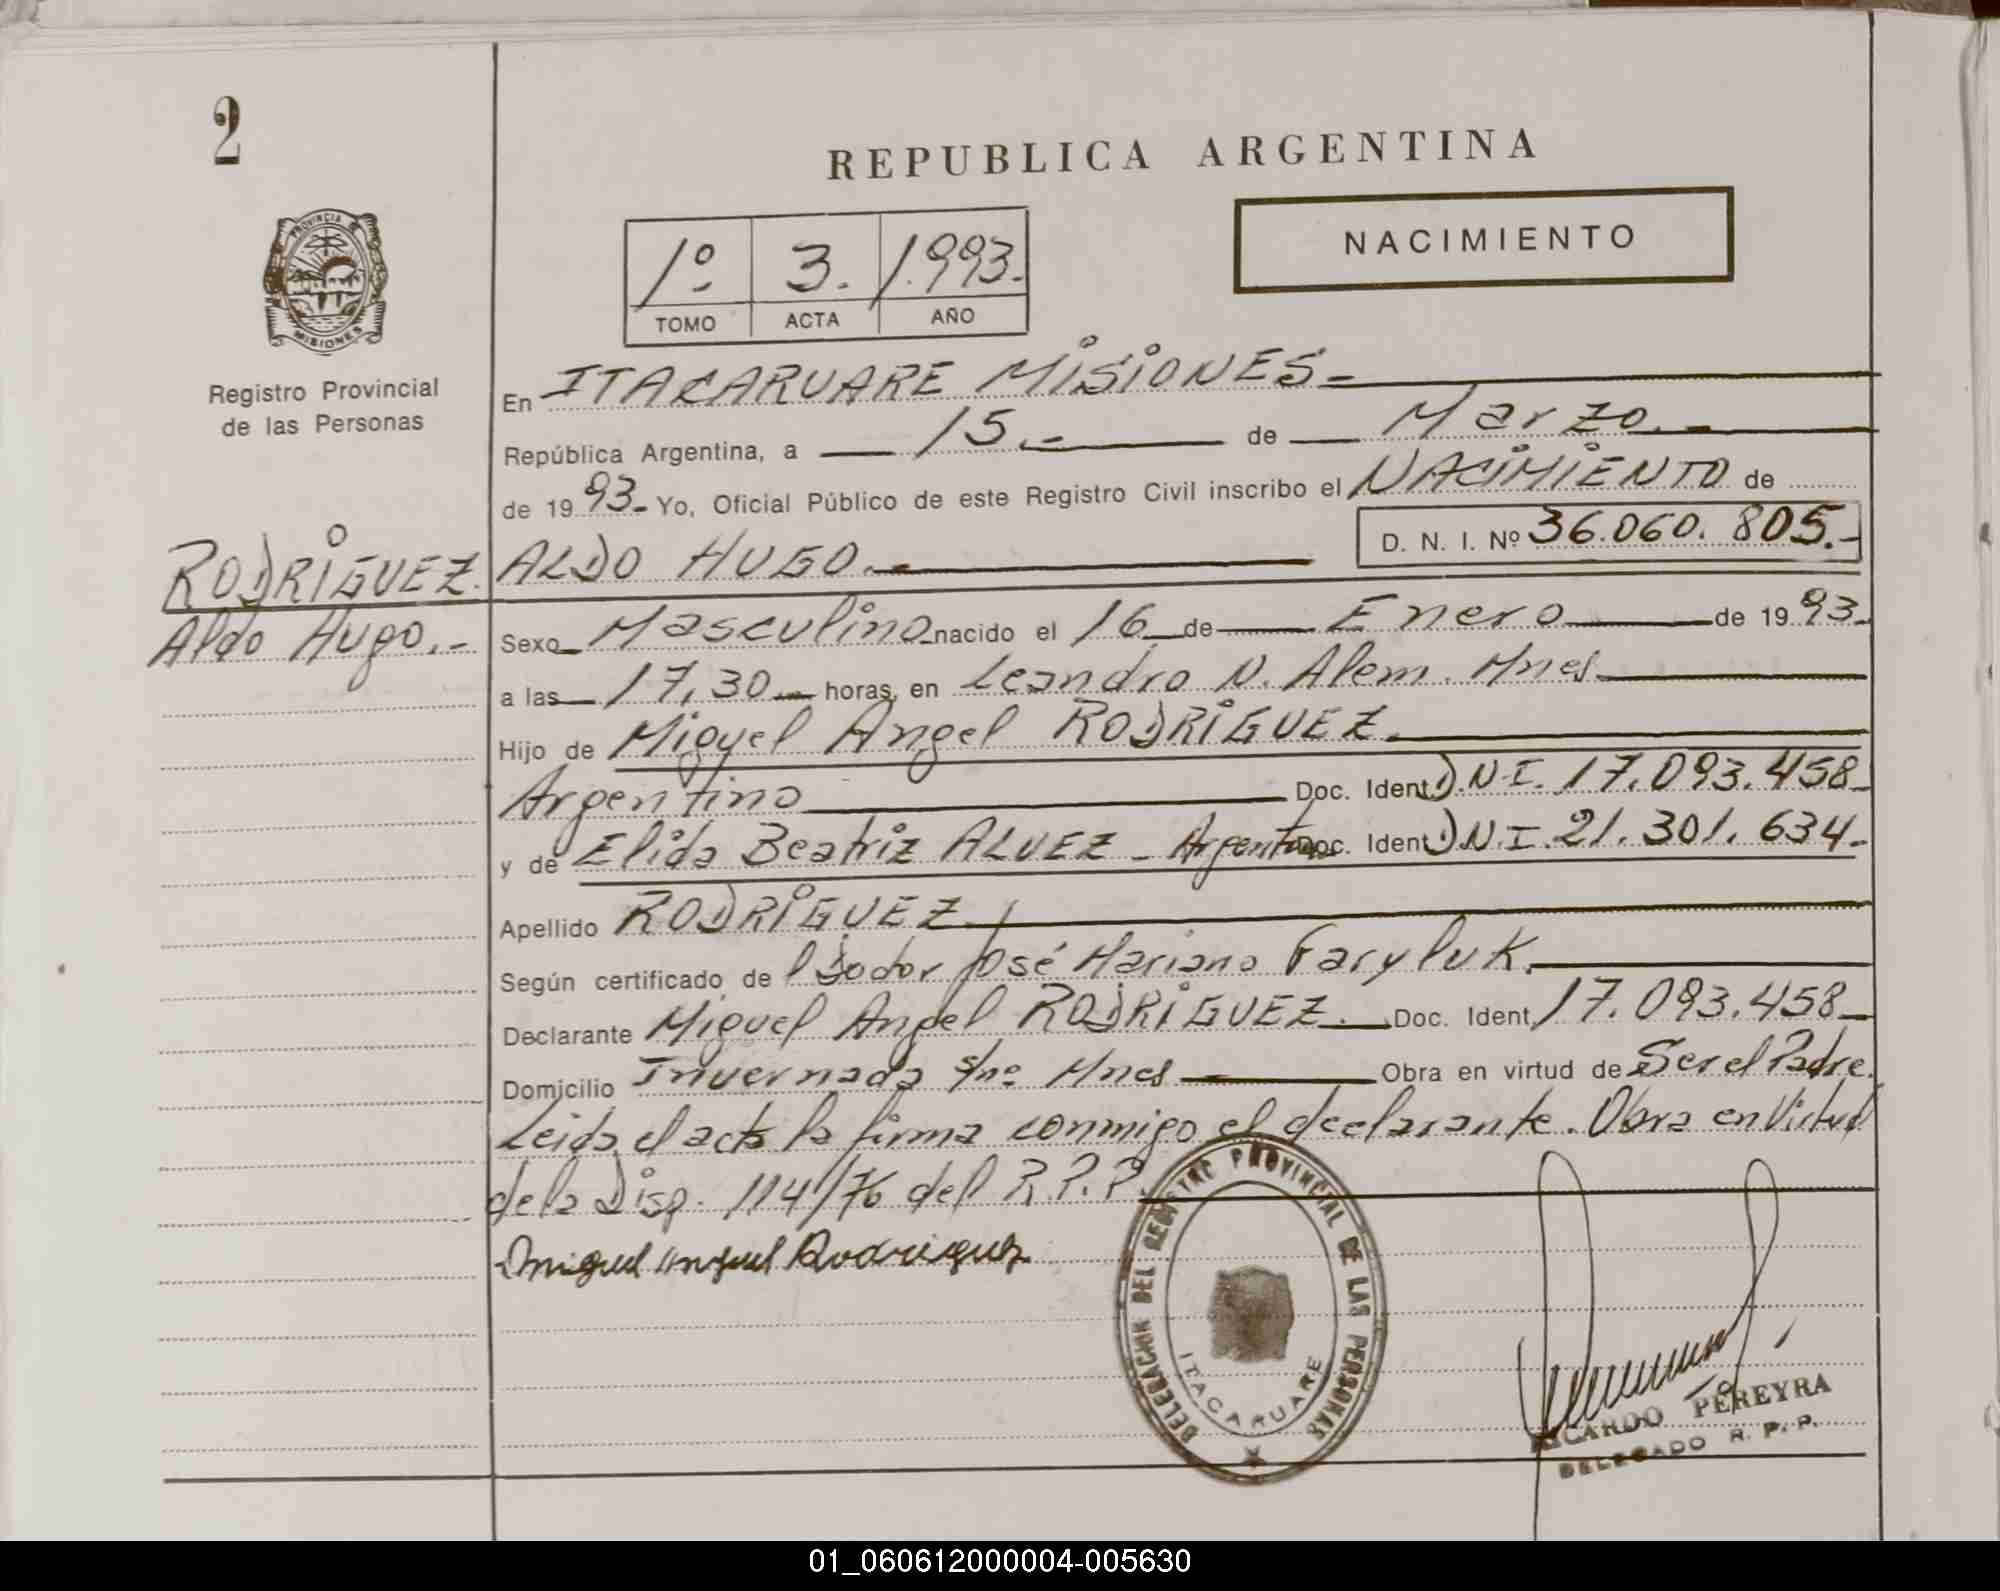 2
REPUBLICA ARGENTINA
NACIMIENTO
1º 3. 1.993.
TOMO ACTA AÑO
PROVINCIA DE
MISIONES
Registro Provincial
de las Personas
En ITACARUARE MISIONES.-
República Argentina, a 15.- de Marzo.-
de 1993.- Yo, Oficial Público de este Registro Civil inscribo el NACIMIENTO de
D. N. I. Nº 36.060.805.-
RODRIGUEZ. ALDO HUGO.-
Aldo Hugo.-
Sexo Masculino nacido el 16 de Enero de 1993.
a las 17,30 horas, en Leandro N. Alem. Mnes.
Hijo de Miguel Angel RODRIGUEZ.
Argentino Doc. Ident. D.N.I. 17.093.458-
y de Elida Beatriz ALVEZ - Argentina Doc. Ident. D.N.I. 21.301.634-
Apellido RODRIGUEZ
Según certificado de José Mariano
Declarante Miguel Angel RODRIGUEZ. Doc. Ident. 17.093.458-
Domicilio Invernada s/nº Mnes Obra en virtud de Ser el Padre.
Leida el acta la firma conmigo el declarante. Obra en Virtud
de la Disp. 114/76 del R.P.P.
Miguel Angel Rodriguez
DELEGACION DEL REGISTRO PROVINCIAL DE LAS PERSONAS
ITACARUARE
RICARDO PEREYRA
DELEGADO R. P. P.
01_060612000004-005630